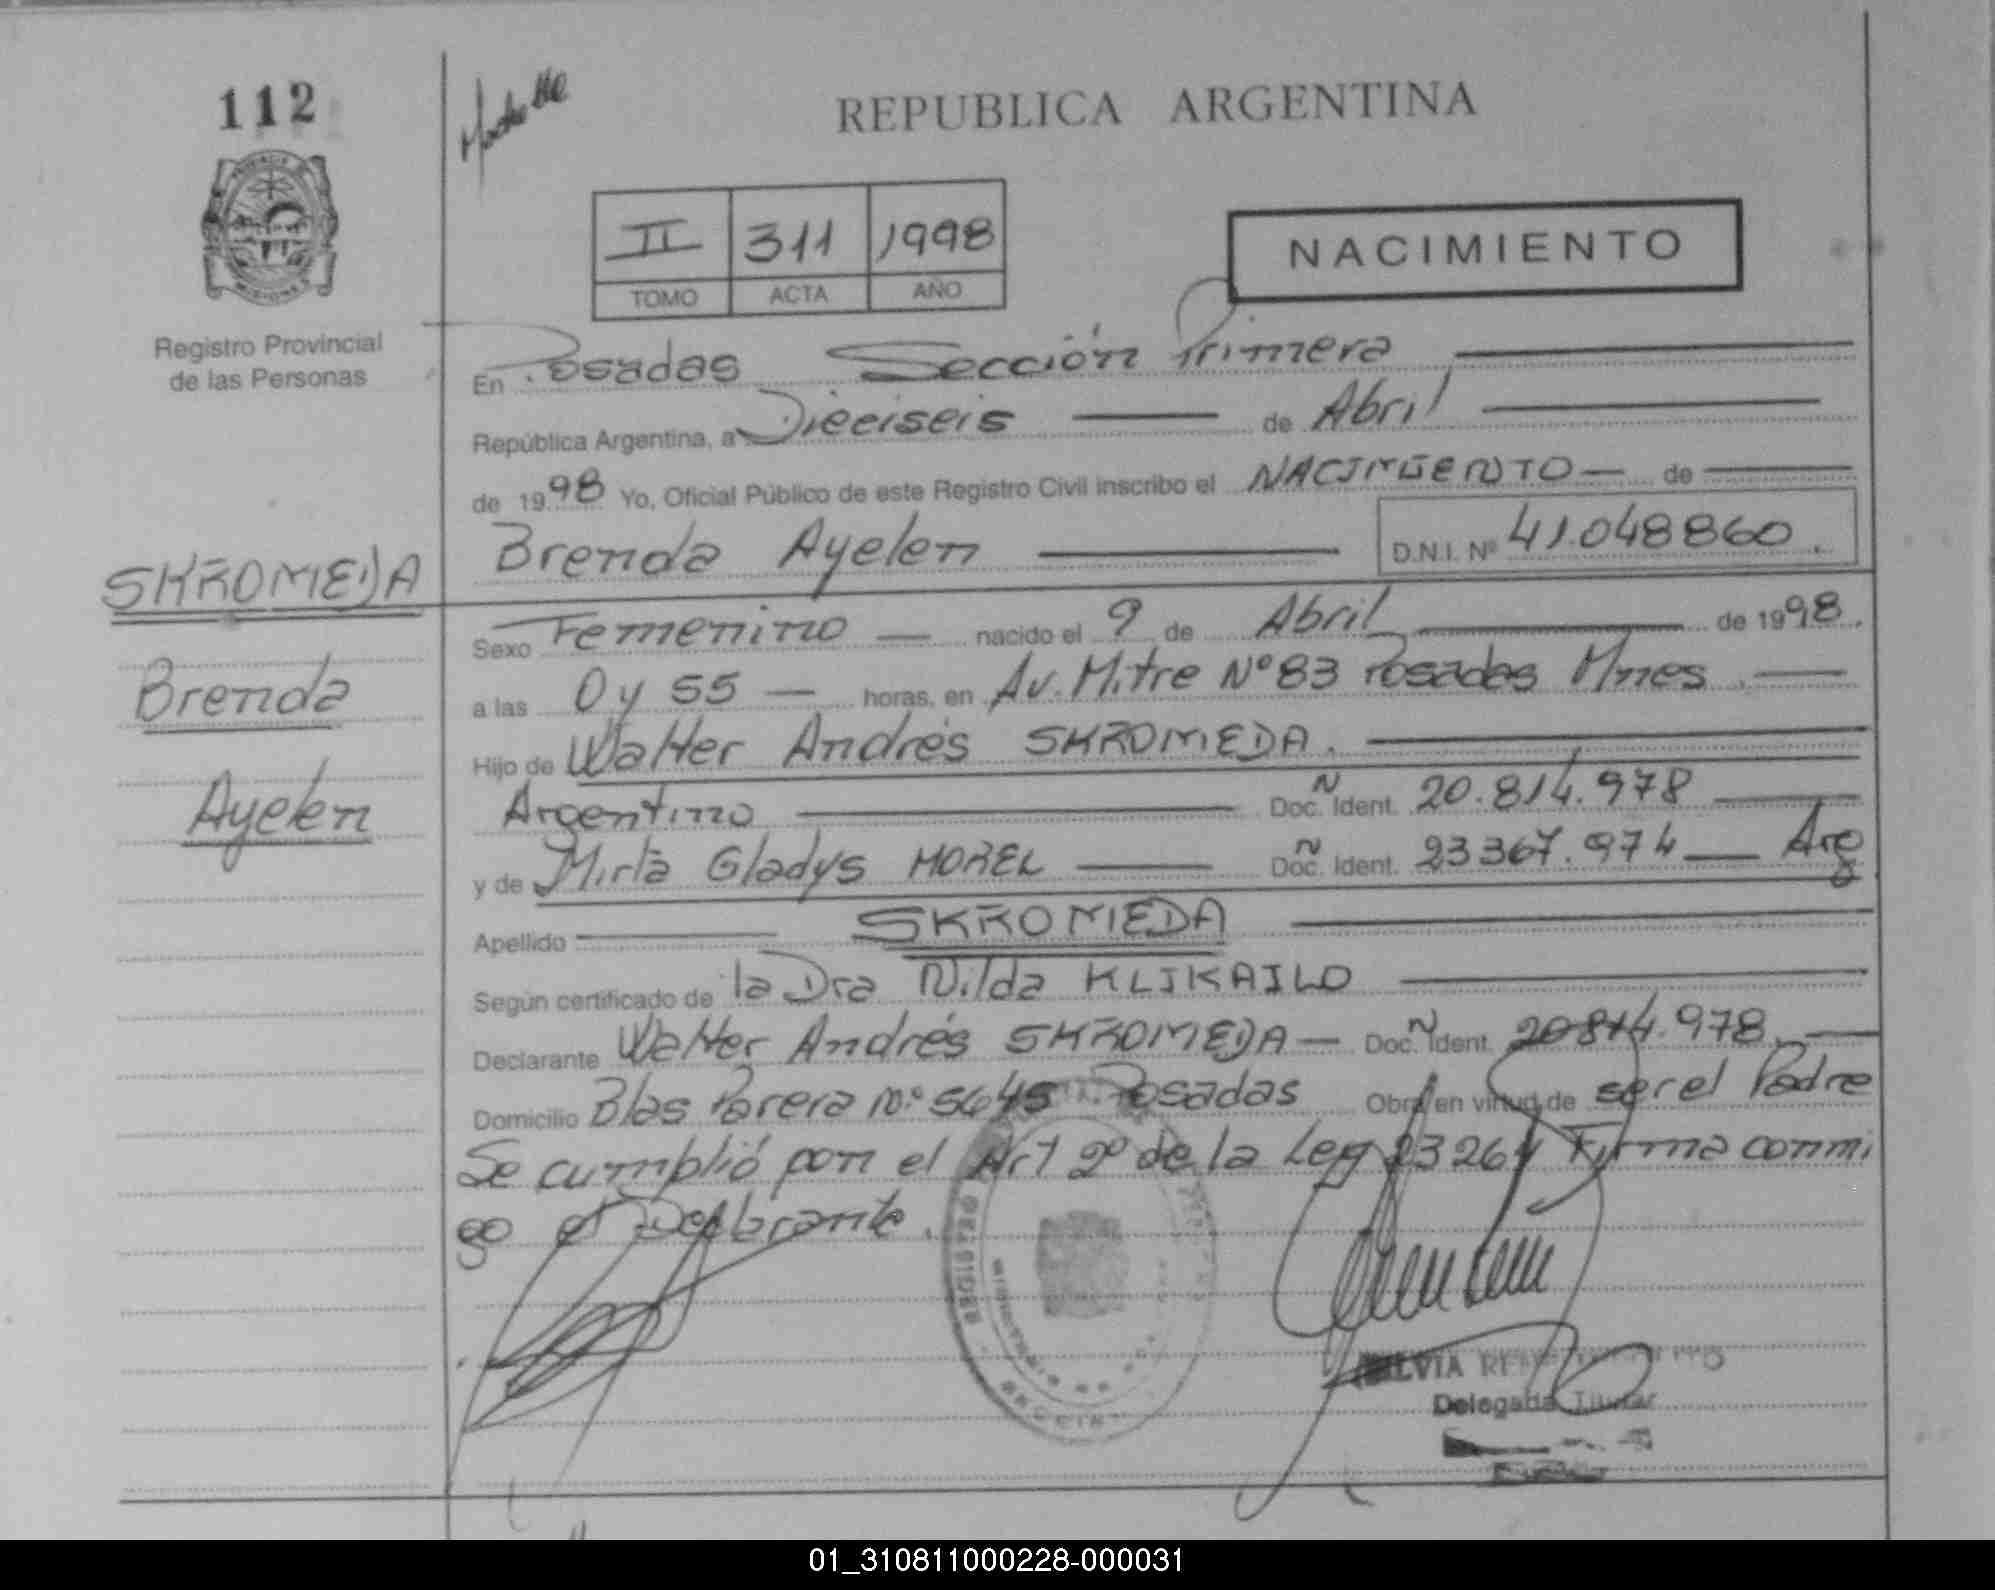 112
REPUBLICA ARGENTINA
II 311 1998
TOMO ACTA AÑO
NACIMIENTO
MISIONES
Registro Provincial
de las Personas
En Posadas Sección Primera
República Argentina, a Dieciseis de Abril
de 1998 Yo, Oficial Público de este Registro Civil inscribo el NACIMIENTO de
Brenda Ayelen D.N.I. Nº 41.048860
SKROMEDA
Brenda
Ayelen
Sexo Femenino nacido el 9 de Abril de 1998.
a las 0 y 55 horas, en Av. Mitre Nº 83 Posadas Mnes.
Hijo de Walter Andrés SKROMEDA.
Argentino Doc. Ident. 20.814.978
y de Mirta Gladys MOREL Doc. Ident. 23367.974 Arg
Apellido SKROMEDA
Según certificado de la Dra Nilda KLIKAILO
Declarante Walter Andrés SKROMEDA Doc. Ident. 20814.978.
Domicilio Blas Parera Nº 5645 Posadas Obra en virtud de ser el Padre
Se cumplió con el Art 2º de la Ley 23264 Firma conmi
go el Declarante.
REGISTRO
SILVIA
Delegada Titular
01_310811000228-000031